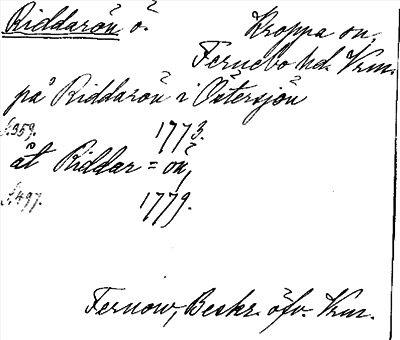 Riddarön ö. Kroppa sn,
Fernebo hd. Vrm.
på Riddarön i Östersjön
s. 359. 1773.
åt Riddar=ön,
s. 497. 1779.
Fernow, Beskr. öfv. Vrm.